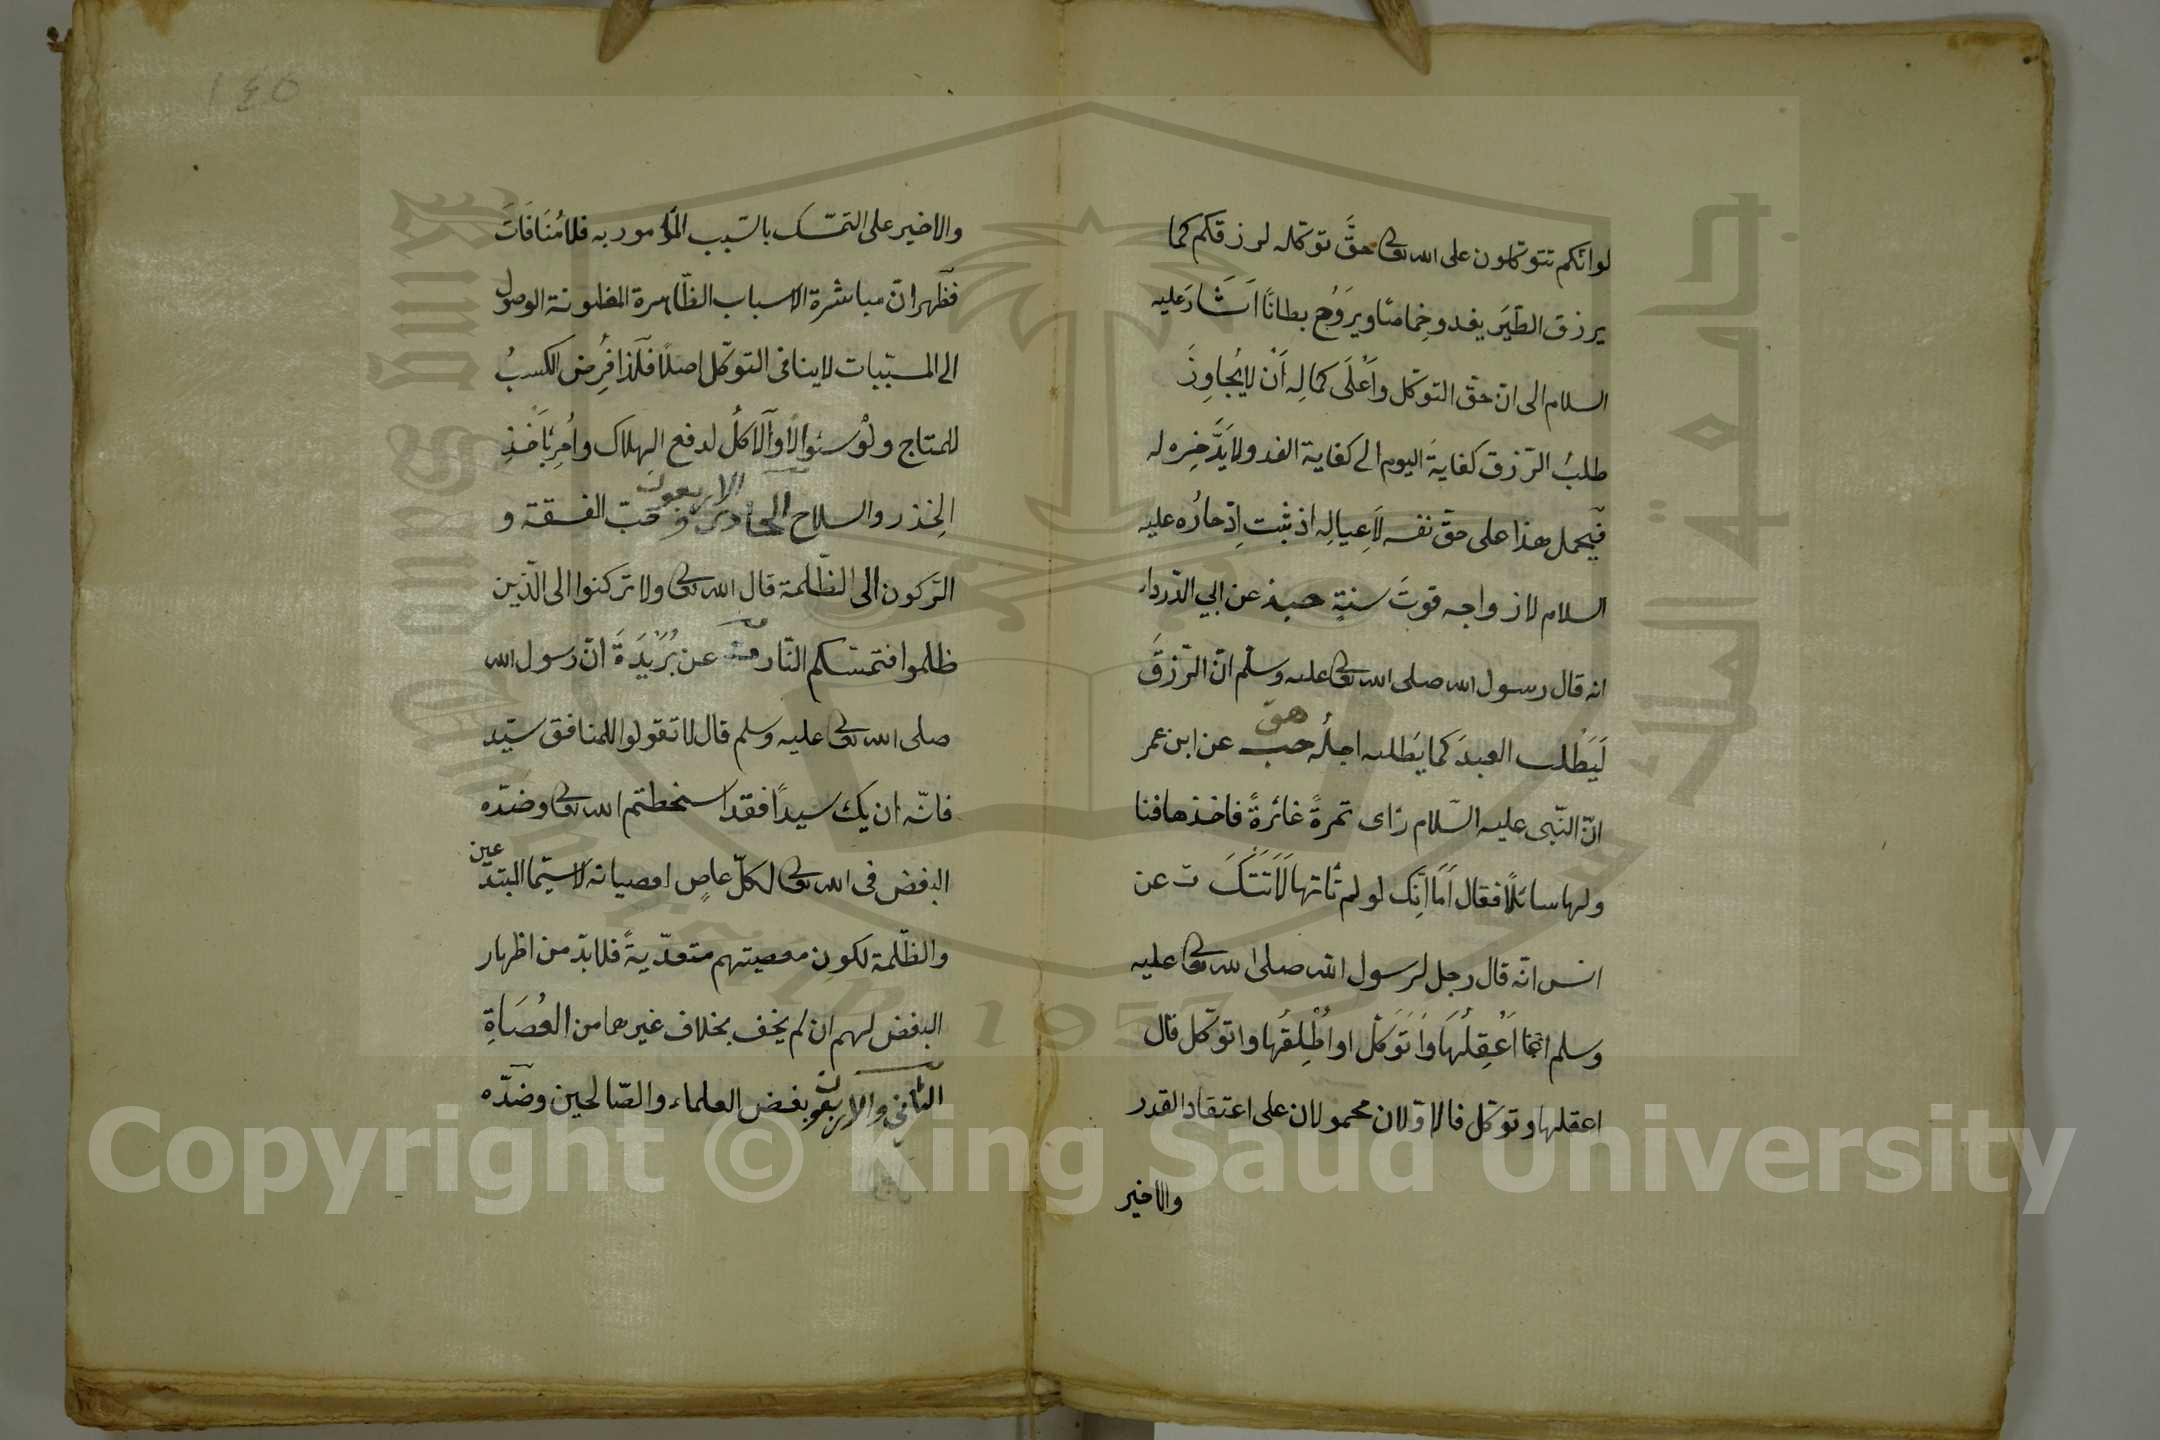 لو انكم تتوكلون على الله تعالى حقَّ توكله لرزقكم كما
يرزق الطَّيَر يغدو خِماصًا ويَرَوُح بطانًا اَشَارَ عليه
السلام الى ان حقّ التوكل واَعْلَى كمالِه اَنْ لا يُجاوِزَ
طلبُ الرّزق كفايةَ اليوم الى كفاية الغد ولا يَدَّخِره له
فيحمل هذا على حقّ نفسه لا عيالِه اذ ثبت اِدّخارُه عليه
السلام لازواجه قوتَ سنةٍ حب عن ابي الدّرداء
انه قال رسول الله صلى الله تعالى عليه وسلّم انّ الرّزقَ
لَيَطْلب العبدَ كما يَطلبه اجلُه حب هق عن ابن عمر
انّ النّبى عليه السّلام رأى تمرةً غائرةً فاخذها فنا
ولها سائلًا فقال اَمَا اِنّك لو لم تأتها لَاَتَتْكَ ت عن
انس انّه قال رجل لرسول الله صلى الله تعالى عليه
وسلم اَعْقِلُهَا وَاَتَوَكّل او اُطْلِقُها واتوكّل قال
اعقلها وتوكّل فالاوّلان محمولان على اعتقاد القدر
والاخير
١٤٥
والاخير على التمسّك بالسّبب المأمور به فلا مُنَافَاتَ
فظهر انّ مباشرة الاسباب الظّاهرة المظنونة الوصول
الى المسبّبات لا ينافى التوكّل اصلًا فلذا فُرِض الكسبُ
للمحتاج ولَوْ سئوالًا والاكلُ لدفع الهلاك واُمِر بأخذِ
الحِذر والسلاح الحادى والاربعون حبّ الفسقة و
الرّكون الى الظّلمة قال الله تعالى ولا تركنوا الى الّذين
ظلموا فتمسّكم النّار عن بُرَيْدَةَ انّ رسول الله
صلى الله تعالى عليه وسلم قال لا تقولوا للمنافق سيّد
فانّه ان يك سيدًا فقد اسخطتم الله تعالى وضدّه
البغض فى الله تعالى لكلّ عاصٍ لعصيانه لاسيّما المبتدعين
والظّلمة لكون معصيتهم متعدّيةً فلا بدّ من اظهار
البغض لهم ان لم يخف بخلاف غيرهما من العُصَاةِ
الثانى والاربعون بغض العلماء والصّالحين وضدّه
King Saud University
1957
Copyright © King Saud University